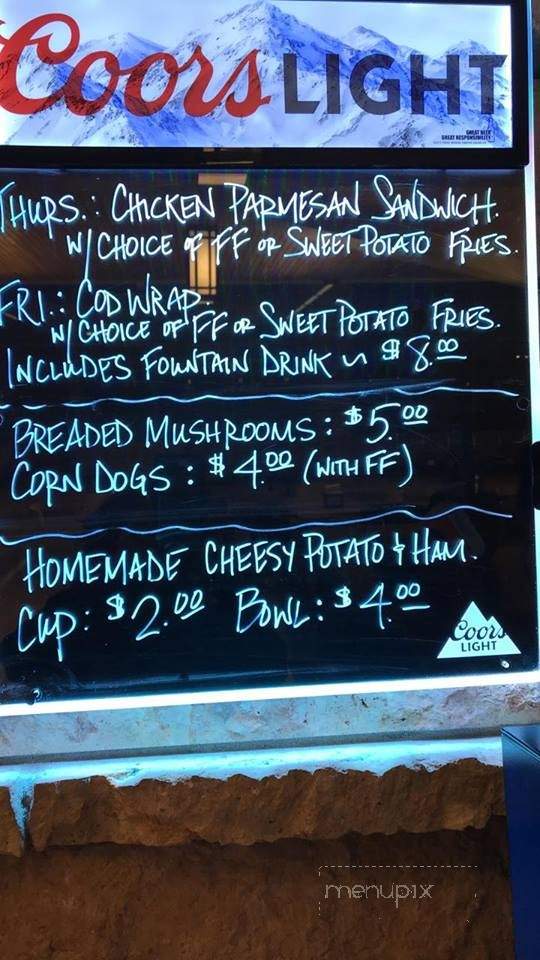 Coors LIGHT
GREAT BEER
GREAT RESPONSIBILITY
THURS.: CHICKEN PARMESAN SANDWICH.
W/ CHOICE OF FF OR SWEET POTATO FRIES.
FRI.: COD WRAP.
W/ CHOICE OF FF OR SWEET POTATO FRIES.
INCLUDES FOUNTAIN DRINK ~ $8.00
BREADED MUSHROOMS: $5.00
CORN DOGS: $4.00 (WITH FF)
HOMEMADE CHEESY POTATO & HAM.
CUP: $2.00 BOWL: $4.00
Coors
LIGHT
menupix